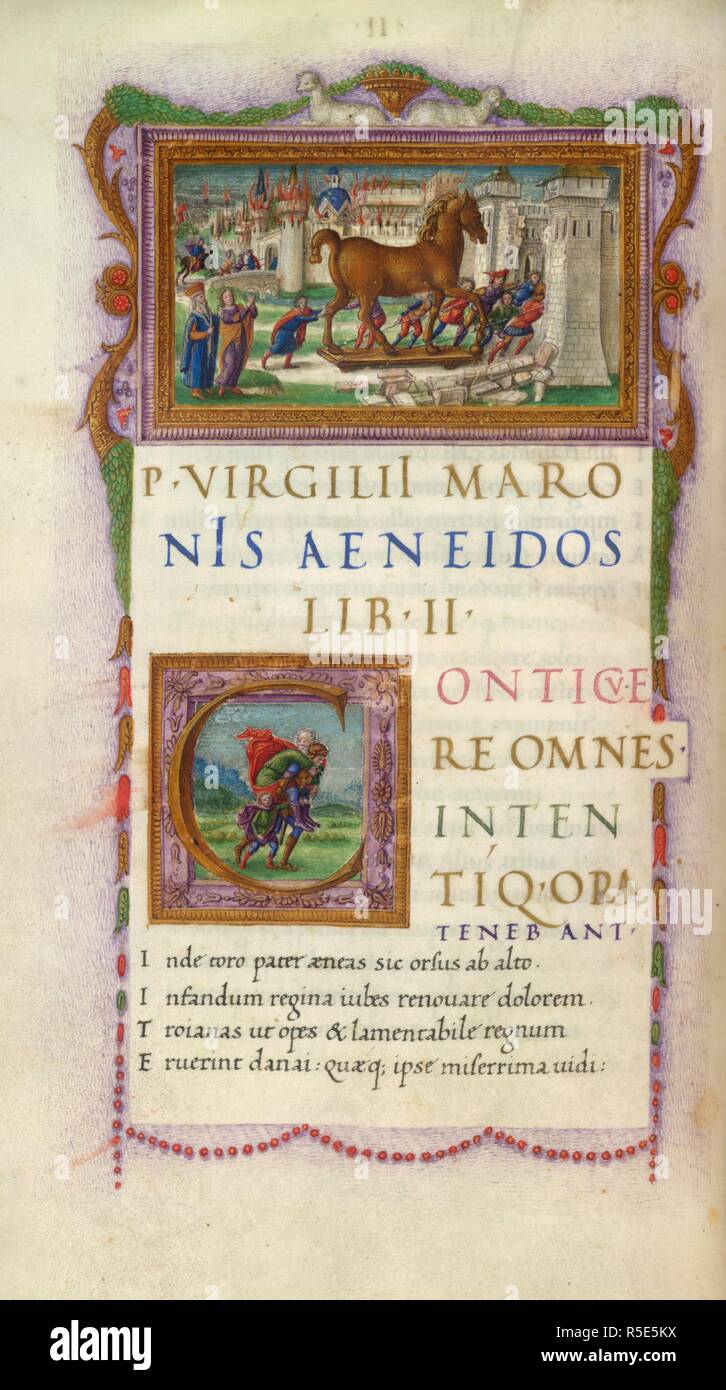 P·VIRGILII MARO
NIS AENEIDOS
LIB·II·
CONTICVE
RE OMNES·
INTEN
TIQ·ORA
TENEBANT·
Inde toro pater æneas sic orſus ab alto.
Infandum regina iubes renouare dolorem.
Troianas ut opes & lamentabile regnum
Eruerint danai: quæq; ipse miſerrima uidi:
alamy
alamy
Image ID: R5E5KX
www.alamy.com